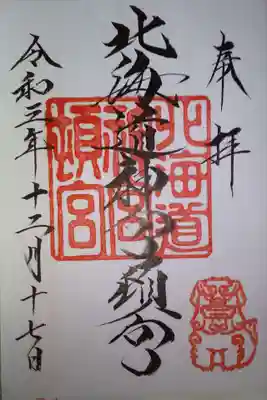 奉拝
北海道神宮頓宮
令和三年十二月十七日
北海道神宮頓宮